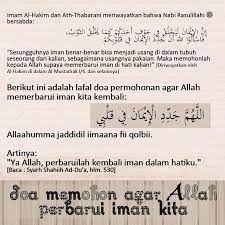 Imam Al-Hakim dan Ath-Thabarani meriwayatkan bahwa Nabi Rasulillahi ﷺ
bersabda:
إِنَّ الْإِيمَانَ لَيَخْلَقُ فِي جَوْفِ أَحَدِكُمْ كَمَا يَخْلَقُ الثَّوْبُ،
فَاسْأَلُوا اللَّهَ أَنْ يُجَدِّدَ الْإِيمَانَ فِي قُلُوبِكُمْ
"Sesungguhnya iman benar-benar bisa menjadi usang di dalam tubuh
seseorang dari kalian, sebagaimana usangnya pakaian. Maka memohonlah
kepada Allah supaya memperbarui iman di hati kalian!" [Diriwayatkan oleh
Al-Hakim di dalam Al-Mustadrak I/4, dan selainnya]
Berikut ini adalah lafal doa permohonan agar Allah
memerbarui iman kita kembali:
اَللَّهُمَّ جَدِّدِ الْإِيْمَانَ فِي قَلْبِي
Allaahumma jaddidil iimaana fii qolbii.
Artinya:
"Ya Allah, perbaruilah kembali iman dalam hatiku."
[Baca : Syarh Shahiih Ad-Du'a, hlm. 530]
doa memohon agar Allah
perbarui iman kita